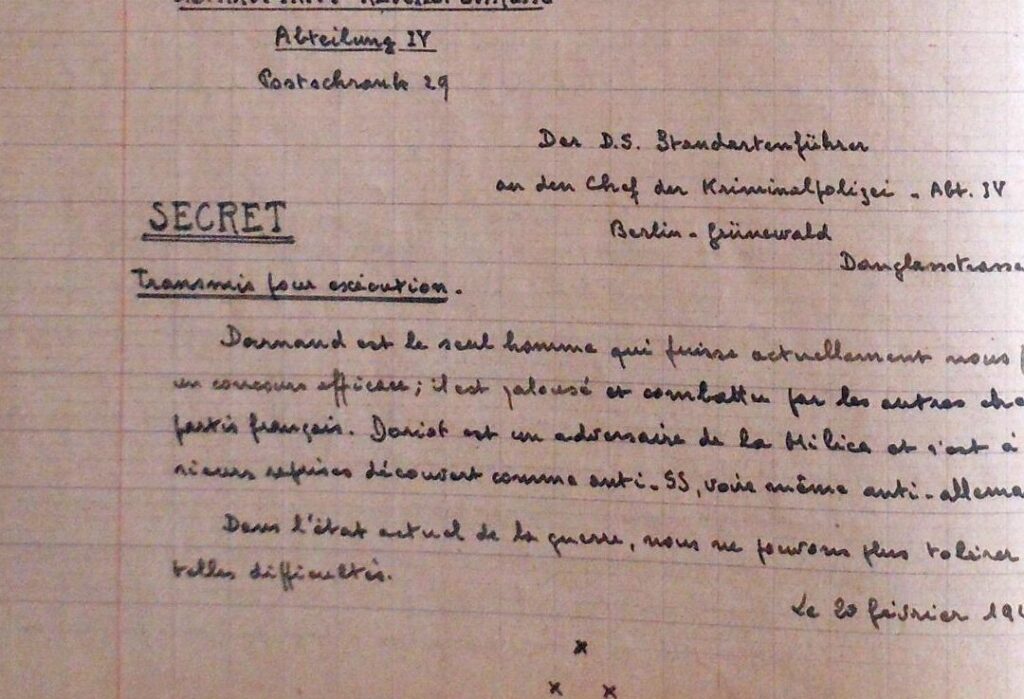 Abteilung IV
Postschrank 29
Der D.S. Standartenführer
an den Chef der Kriminalpolizei - Abt. IV
Berlin - Grünewald
Douglasstrasse
SECRET
Transmis pour exécution.
Darnand est le seul homme qui puisse actuellement nous
un concours efficace ; il est jalousé et combattu par les autres
partis français. Doriot est un adversaire de la Milice et s'est à
sieurs reprises découvert comme anti-SS, voire même anti-allema
Dans l'état actuel de la guerre, nous ne pouvons plus tolérer
telles difficultés.
Le 20 février 194
x
x x